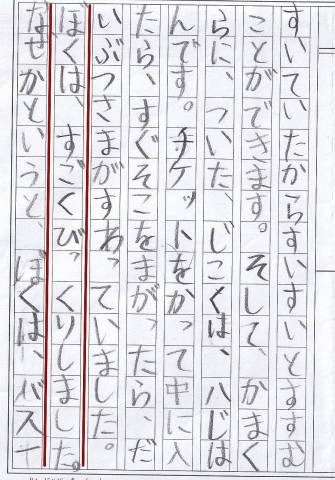 すいていたからすいすいとすすむ
ことができます。そして、かまく
らに、ついた、じこくは、八じは
んです。チケットをかって中に入
たら、すぐそこをまがったら、だ
いぶつさまがすわっていました。
ぼくは、すごくびっくりしました。
なぜかというと、ぼくは、バス十